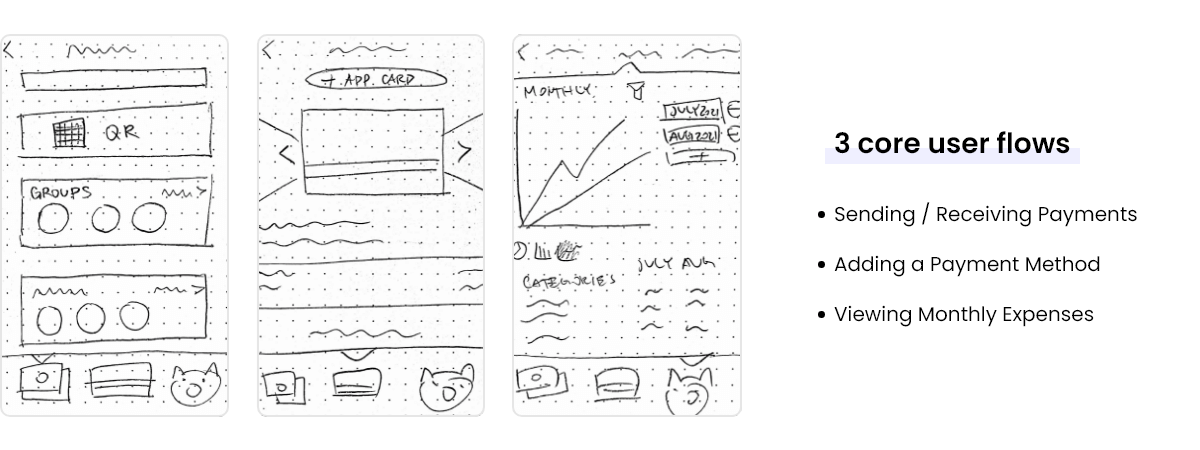 QR
GROUPS
+ APP. CARD
MONTHLY
JULY 2021
AUG 2021
+
JULY AUG
CATEGORIES
3 core user flows
• Sending / Receiving Payments
• Adding a Payment Method
• Viewing Monthly Expenses